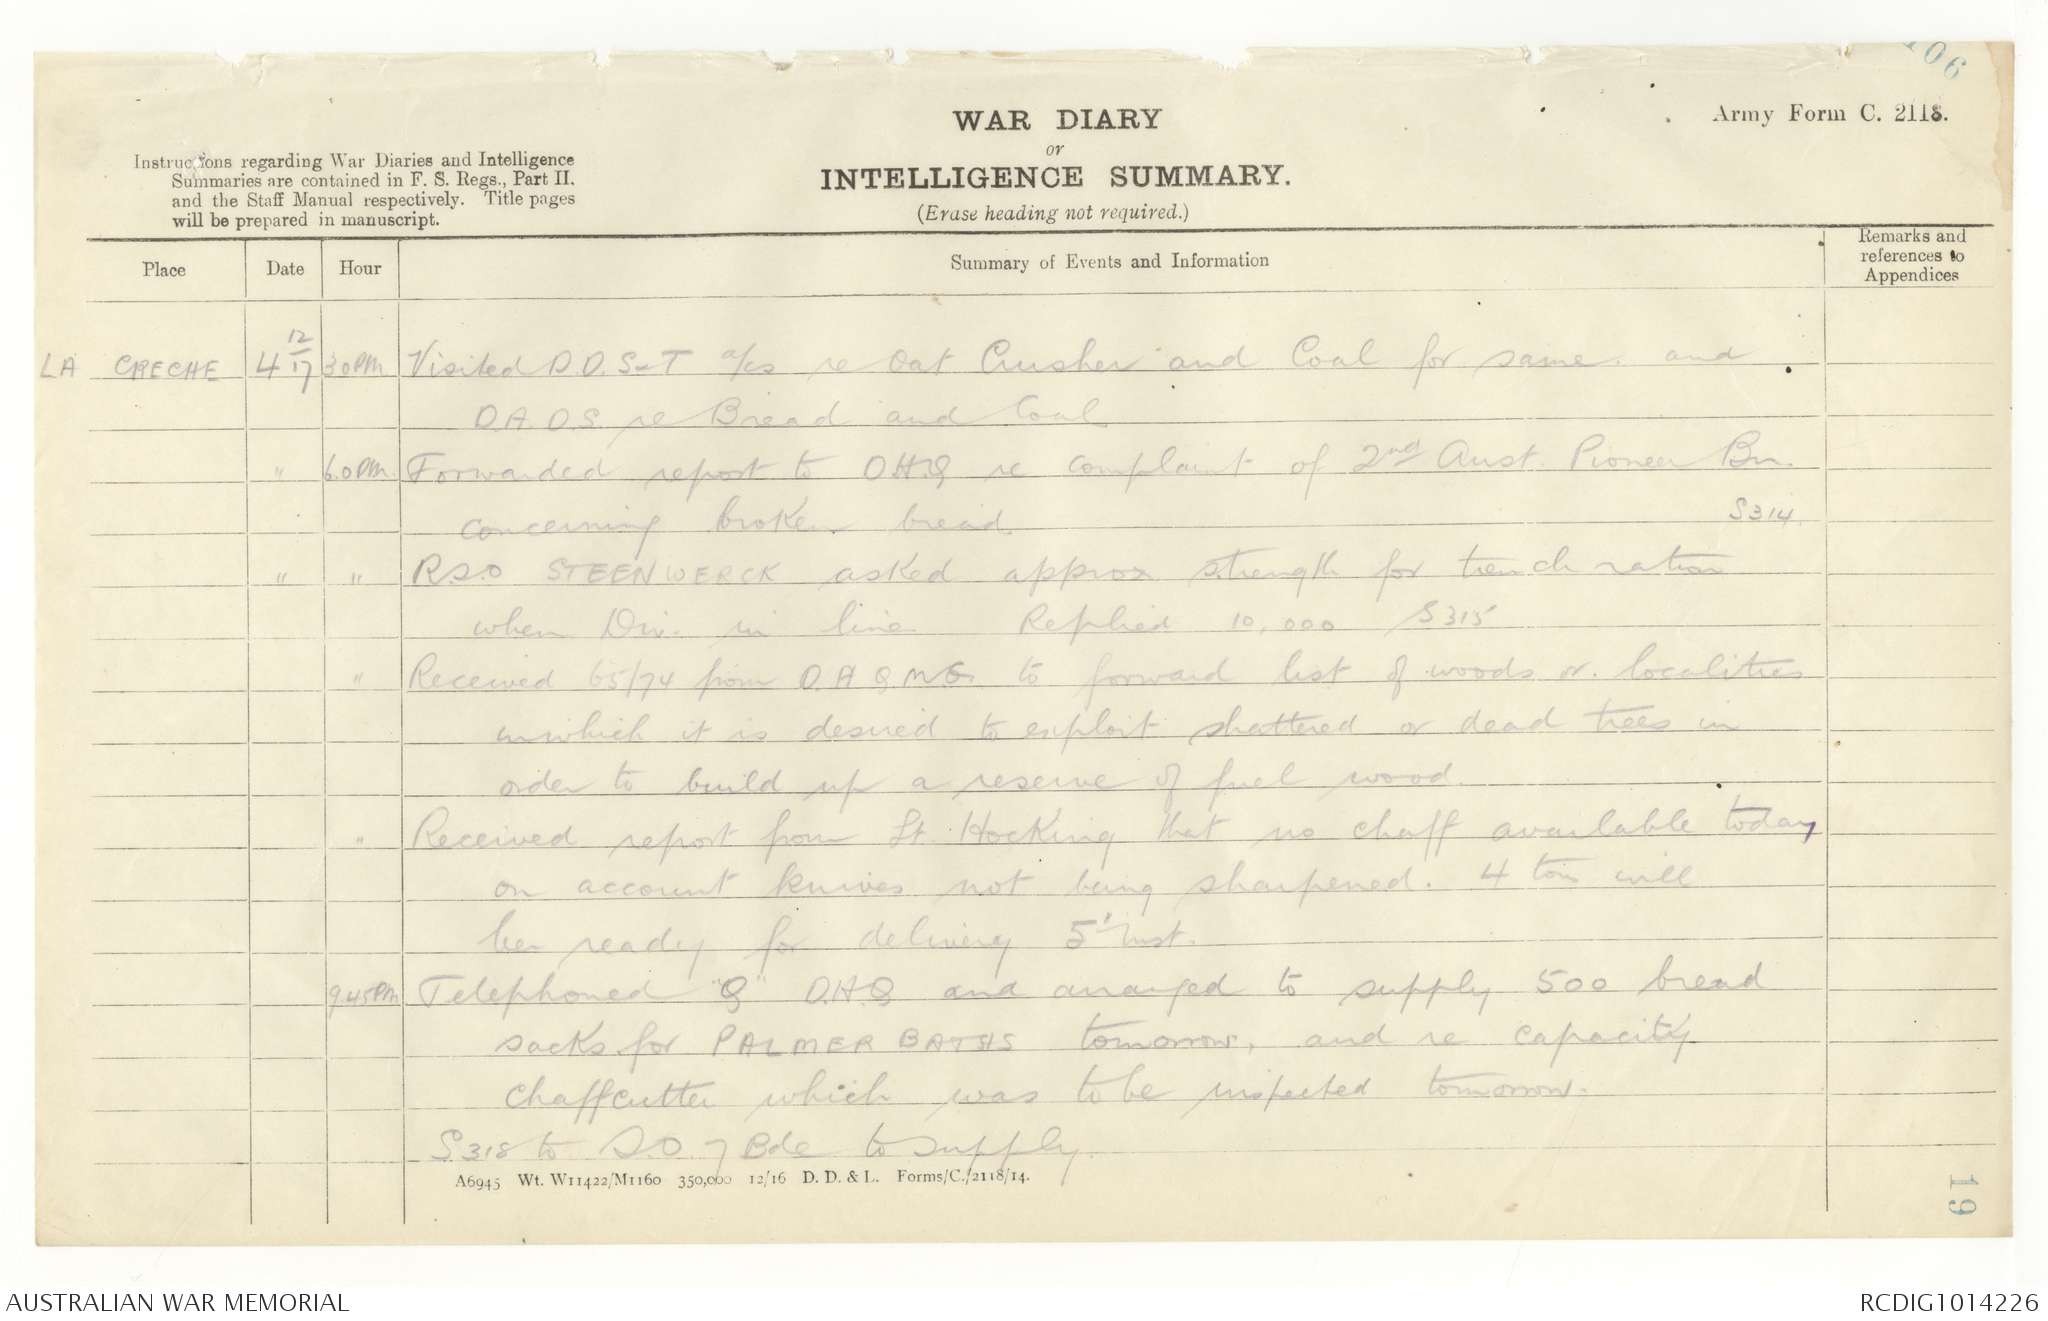 106
WAR DIARY
or
INTELLIGENCE SUMMARY.
(Erase heading not required.)
Army Form C. 2118.
Instructions regarding War Diaries and Intelligence
Summaries are contained in F. S. Regs., Part II.
and the Staff Manual respectively. Title pages
will be prepared in manuscript.
Place Date Hour Summary of Events and Information Remarks and references to Appendices
LA CRECHE 4 12/17 3.0PM Visited D.D.S-T re Oat Crusher and Coal for same. and
D.A.D.S. re Bread and Coal
" 6.0PM. Forwarded report to D.H.Q re complaint of 2nd Aust. Pioneer Bn.
concerning broken bread. S314.
" " R.S.O STEENWERCK asked approx strength for trench ration
when Div. in line Replied 10,000 S315
" Received 65/74 from D.A.Q.M.G. to forward list of woods or localities
in which it is desired to exploit shattered or dead trees in
order to build up a reserve of fuel wood.
" Received report from Lt. Hocking that no chaff available today
on account knives not being sharpened. 4 tons will
be ready for delivery 5" Inst.
9.45PM Telephoned "Q" D.H.Q and arranged to supply 500 bread
sacks for PALMER BATHS tomorrow, and re capacity
Chaffcutter which was to be inspected tomorrow.
S.318 to S.O 7 Bde to supply.
A6945 Wt. W11422/M1160 350,000 12/16 D. D. & L. Forms/C./2118/14.
19
AUSTRALIAN WAR MEMORIAL
RCDIG1014226